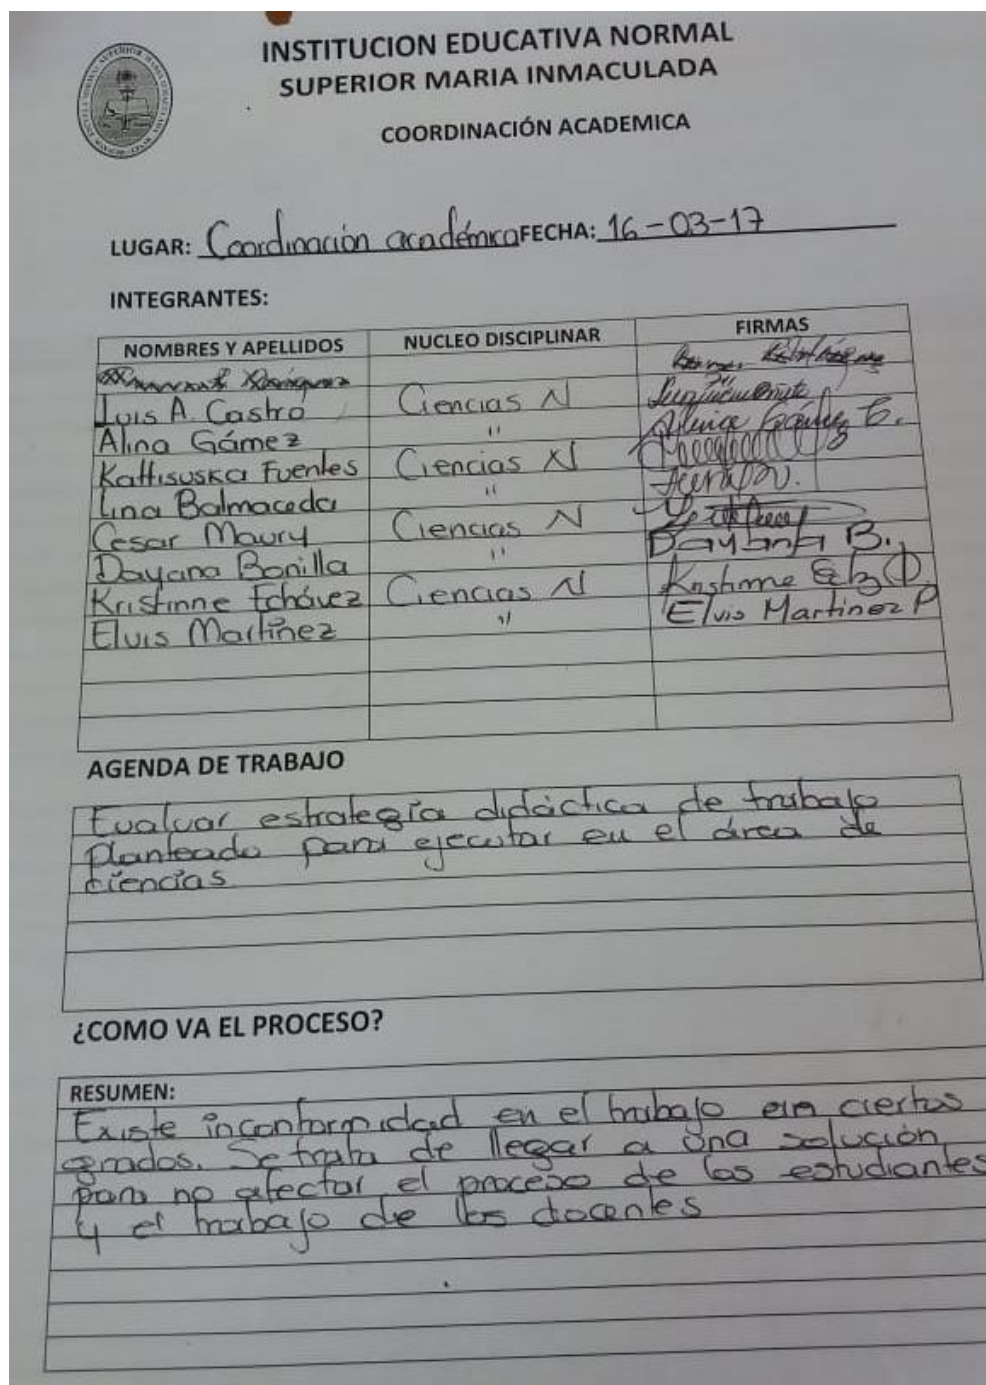 INSTITUCION EDUCATIVA NORMAL
SUPERIOR MARIA INMACULADA
COORDINACIÓN ACADEMICA
LUGAR: Coordinación académica FECHA: 16-03-17
INTEGRANTES:
NOMBRES Y APELLIDOS NUCLEO DISCIPLINAR FIRMAS
Luis A. Castro Ciencias N
Alina Gámez " Alina Gámez E.
Kattisuska Fuentes Ciencias N
Lina Balmaceda "
Cesar Maury Ciencias N
Dayana Bonilla " Dayana B.
Kristinne Echávez Ciencias N Kristinne
Elvis Martínez " Elvis Martinez P
AGENDA DE TRABAJO
Evaluar estrategía didáctica de trabajo
planteado para ejecutar en el área de
ciencias
¿COMO VA EL PROCESO?
RESUMEN:
Existe inconformidad en el trabajo en ciertos
grados. Se trata de llegar a una solución
para no afectar el proceso de los estudiantes
y el trabajo de los docentes